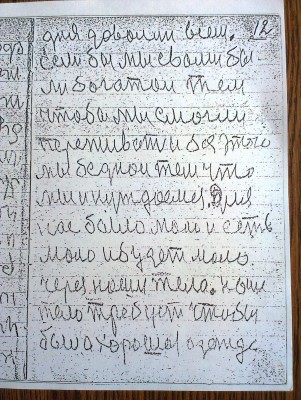 12
дня довоили всем.
если бы мы своили бы
ли богатои тем
чтобы мы смогли
переживати без этого
мы беднои тем что
мы и нуждаемся. Для
нас было мало и есть
мало и будет мало
через нашу тело. наше
тело требует чтобы
была хорошая одежде